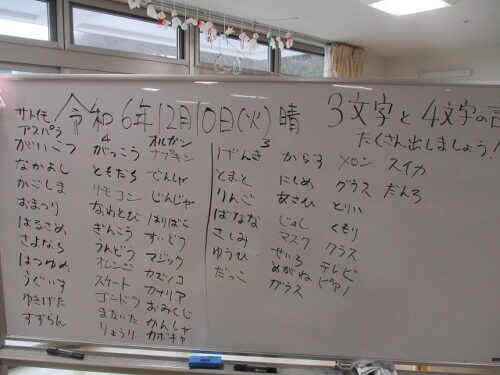 令和6年12月10日(火) 晴
3文字と4文字の言
たくさん出しましょう!
4
サトイモ
アスパラ
がいこつ
なかよし
かごしま
おまつり
はるさめ
さよなら
はつゆめ
うぐいす
ゆきげた
すずらん
がっこう
ともだち
リモコン
なわとび
ぎんこう
うんどう
オレンジ
スケート
ゴンドラ
まないた
りょうり
オルガン
ナプキン
でんしゃ
じんじゃ
はりばこ
すいどう
マジック
カズノコ
カナリア
おみくじ
かんしゃ
カボチャ
3
げんき
とまと
りんご
ばなな
さしみ
ゆうひ
だっこ
からす
にしめ
あさひ
じょし
マスク
せいろ
めがね
ガラス
メロン
グラス
とりい
くもり
クラス
テレビ
ピアノ
スイカ
だんろ